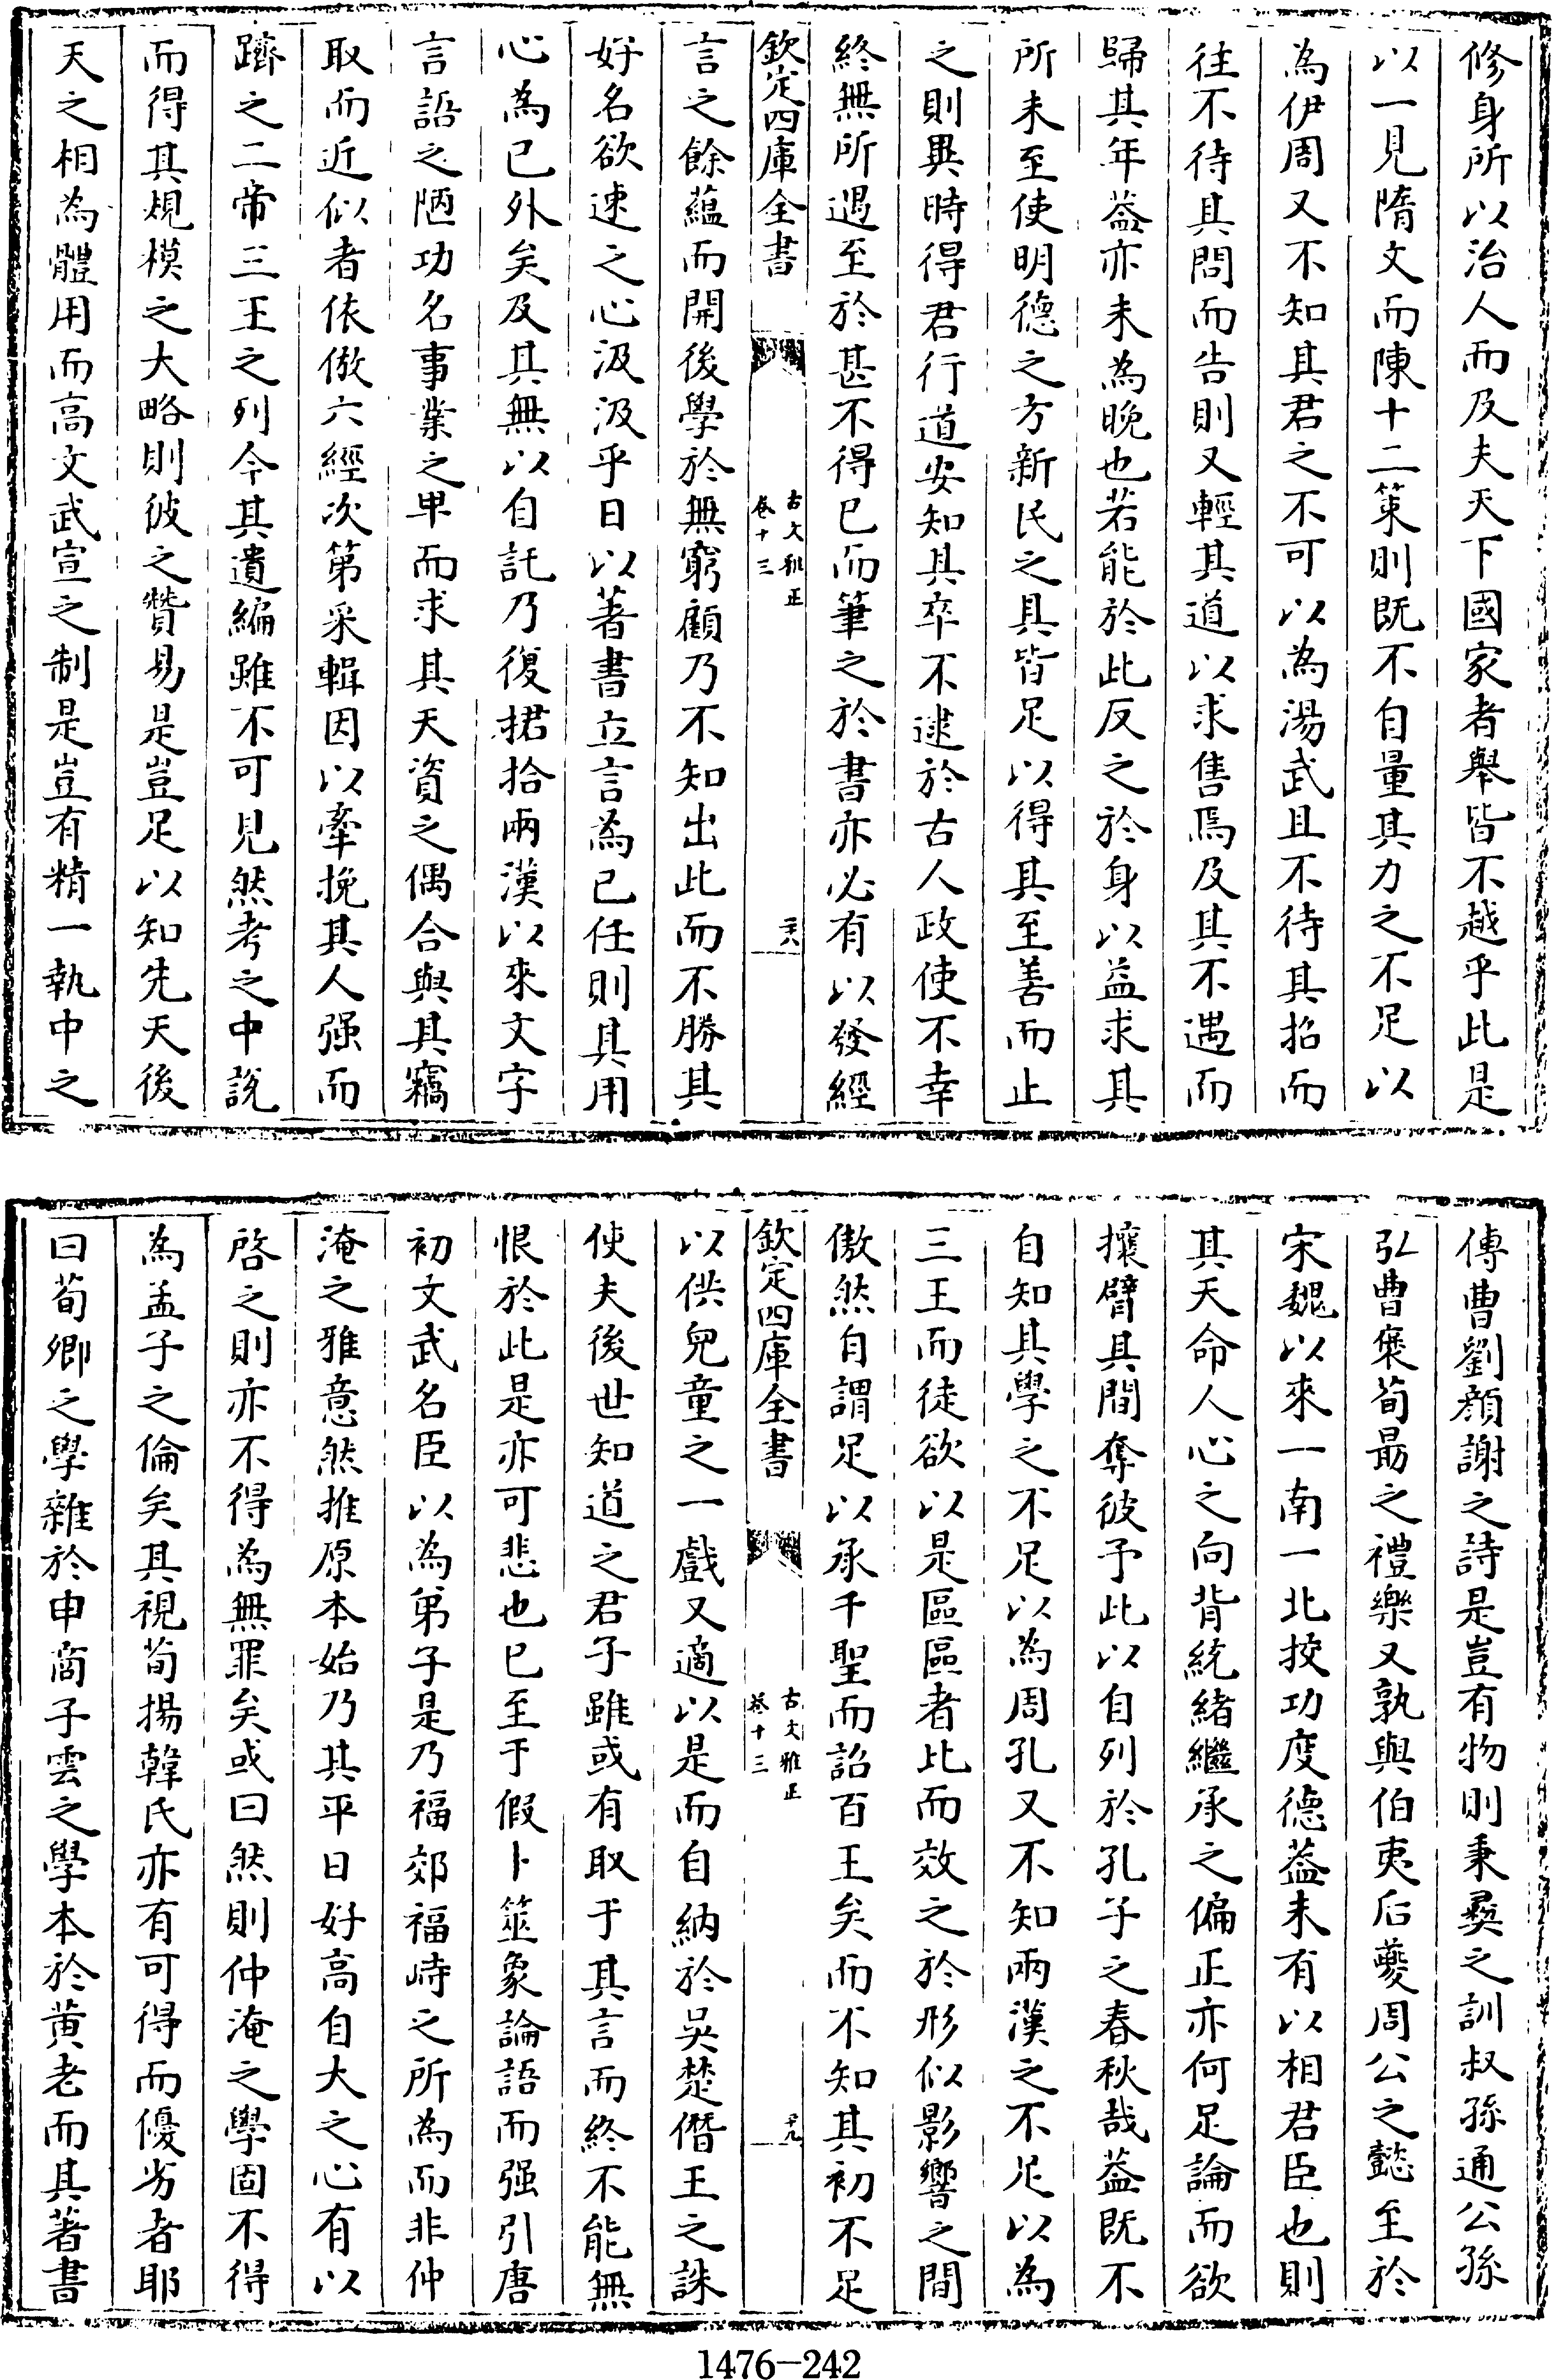 修身所以治人而及夫天下國家者舉皆不越乎此是
以一見隋文而陳十二策則既不自量其力之不足以
為伊周又不知其君之不可以為湯武且不待其招而
往不待其問而告則又輕其道以求售焉及其不遇而
歸其年葢亦未為晚也若能於此反之於身以益求其
所未至使明德之方新民之具皆足以得其至善而止
之則異時得君行道安知其卒不逮於古人政使不幸
終無所遇至於甚不得已而筆之於書亦必有以發經
欽定四庫全書
古文雅正
卷十三
二六
言之餘蘊而開後學於無窮顧乃不知出此而不勝其
好名欲速之心汲汲乎日以著書立言為己任則其用
心為已外矣及其無以自託乃復捃拾兩漢以來文字
言語之陋功名事業之卑而求其天資之偶合與其竊
取而近似者依倣六經次第采輯因以牽挽其人强而
躋之二帝三王之列今其遺編雖不可見然考之中說
而得其規模之大略則彼之贊易是豈足以知先天後
天之相為體用而高文武宣之制是豈有精一執中之
傳曹劉顔謝之詩是豈有物則秉彞之訓叔孫通公孫
弘曹褒荀朂之禮樂又孰與伯夷后夔周公之懿至於
宋魏以來一南一北挍功度德葢未有以相君臣也則
其天命人心之向背統緒繼承之偏正亦何足論而欲
攘臂其間奪彼予此以自列於孔子之春秋哉葢既不
自知其學之不足以為周孔又不知兩漢之不足以為
三王而徒欲以是區區者比而效之於形似影響之間
傲然自謂足以承千聖而詔百王矣而不知其初不足
欽定四庫全書
古文雅正
卷十三
十九
以供兒童之一戲又適以是而自納於吳楚僭王之誅
使夫後世知道之君子雖或有取于其言而終不能無
恨於此是亦可悲也已至于假卜筮象論語而强引唐
初文武名臣以為弟子是乃福郊福畤之所為而非仲
淹之雅意然推原本始乃其平日好高自大之心有以
啓之則亦不得為無罪矣或曰然則仲淹之學固不得
為孟子之倫矣其視荀揚韓氏亦有可得而優劣者耶
曰荀卿之學雜於申商子雲之學本於黄老而其著書
1476-242